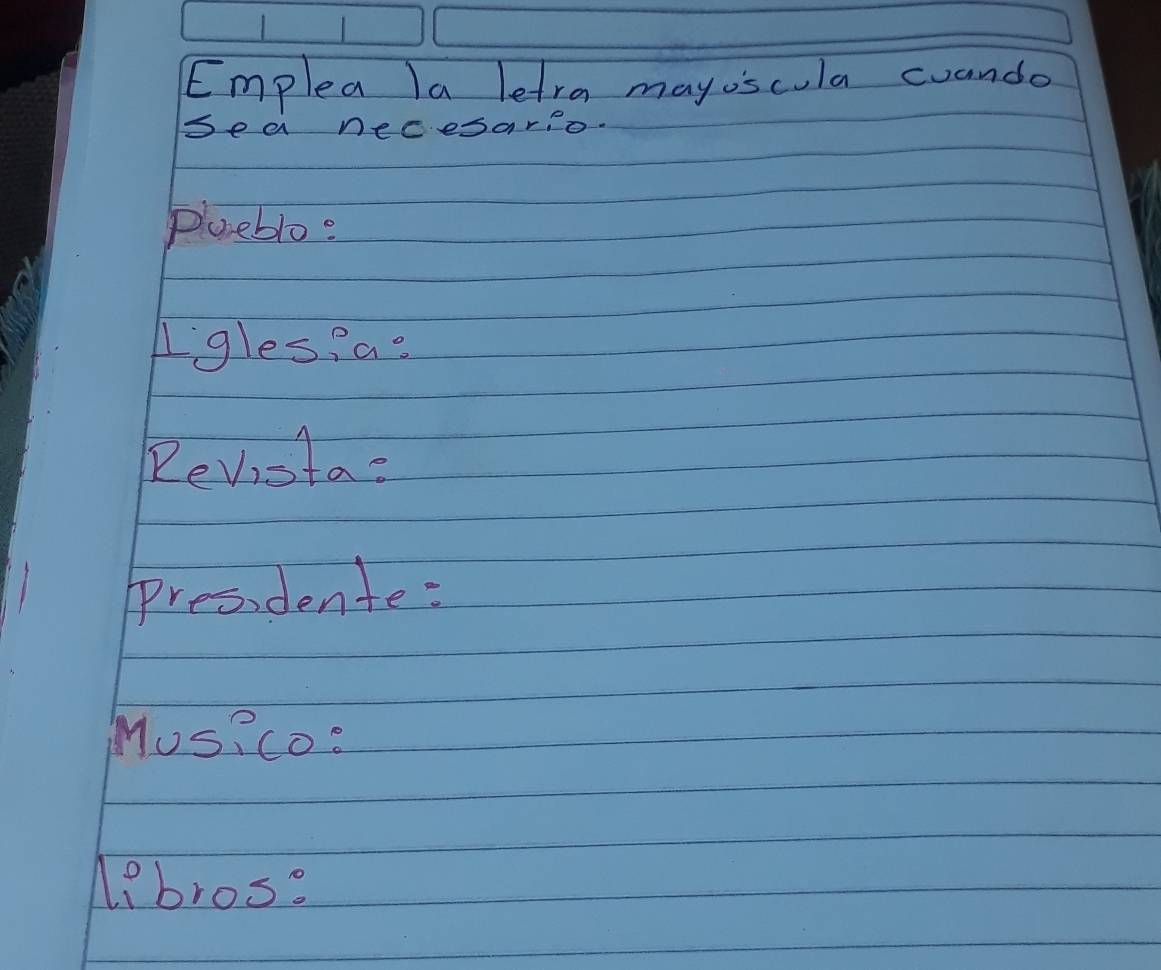 Emplea la letra mayúscula cuando
sea necesario.
Pueblo:
Iglesia:
Revista:
Presidente:
Musico:
libros: